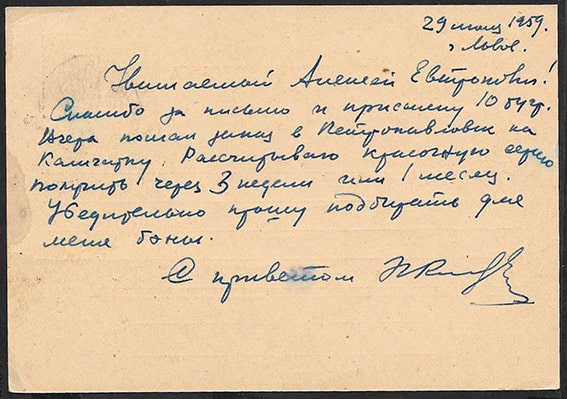 29 июля 1959.
г. Львов.
Уважаемый Алексей Евтропович!
Спасибо за письмо и присылку 10 руб.
Вчера послал заказ в Петропавловск на
Камчатку. Рассчитываю красочную серию
получить через 3 недели или 1 месяц.
Убедительно прошу подбирать для
меня боны.
С приветом